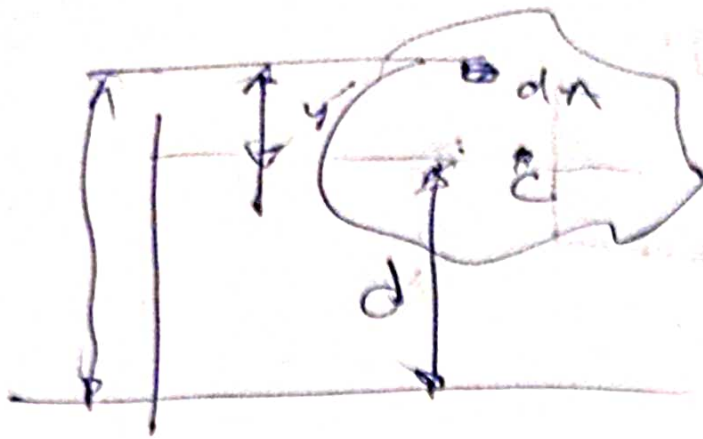 y'
dA
C
d